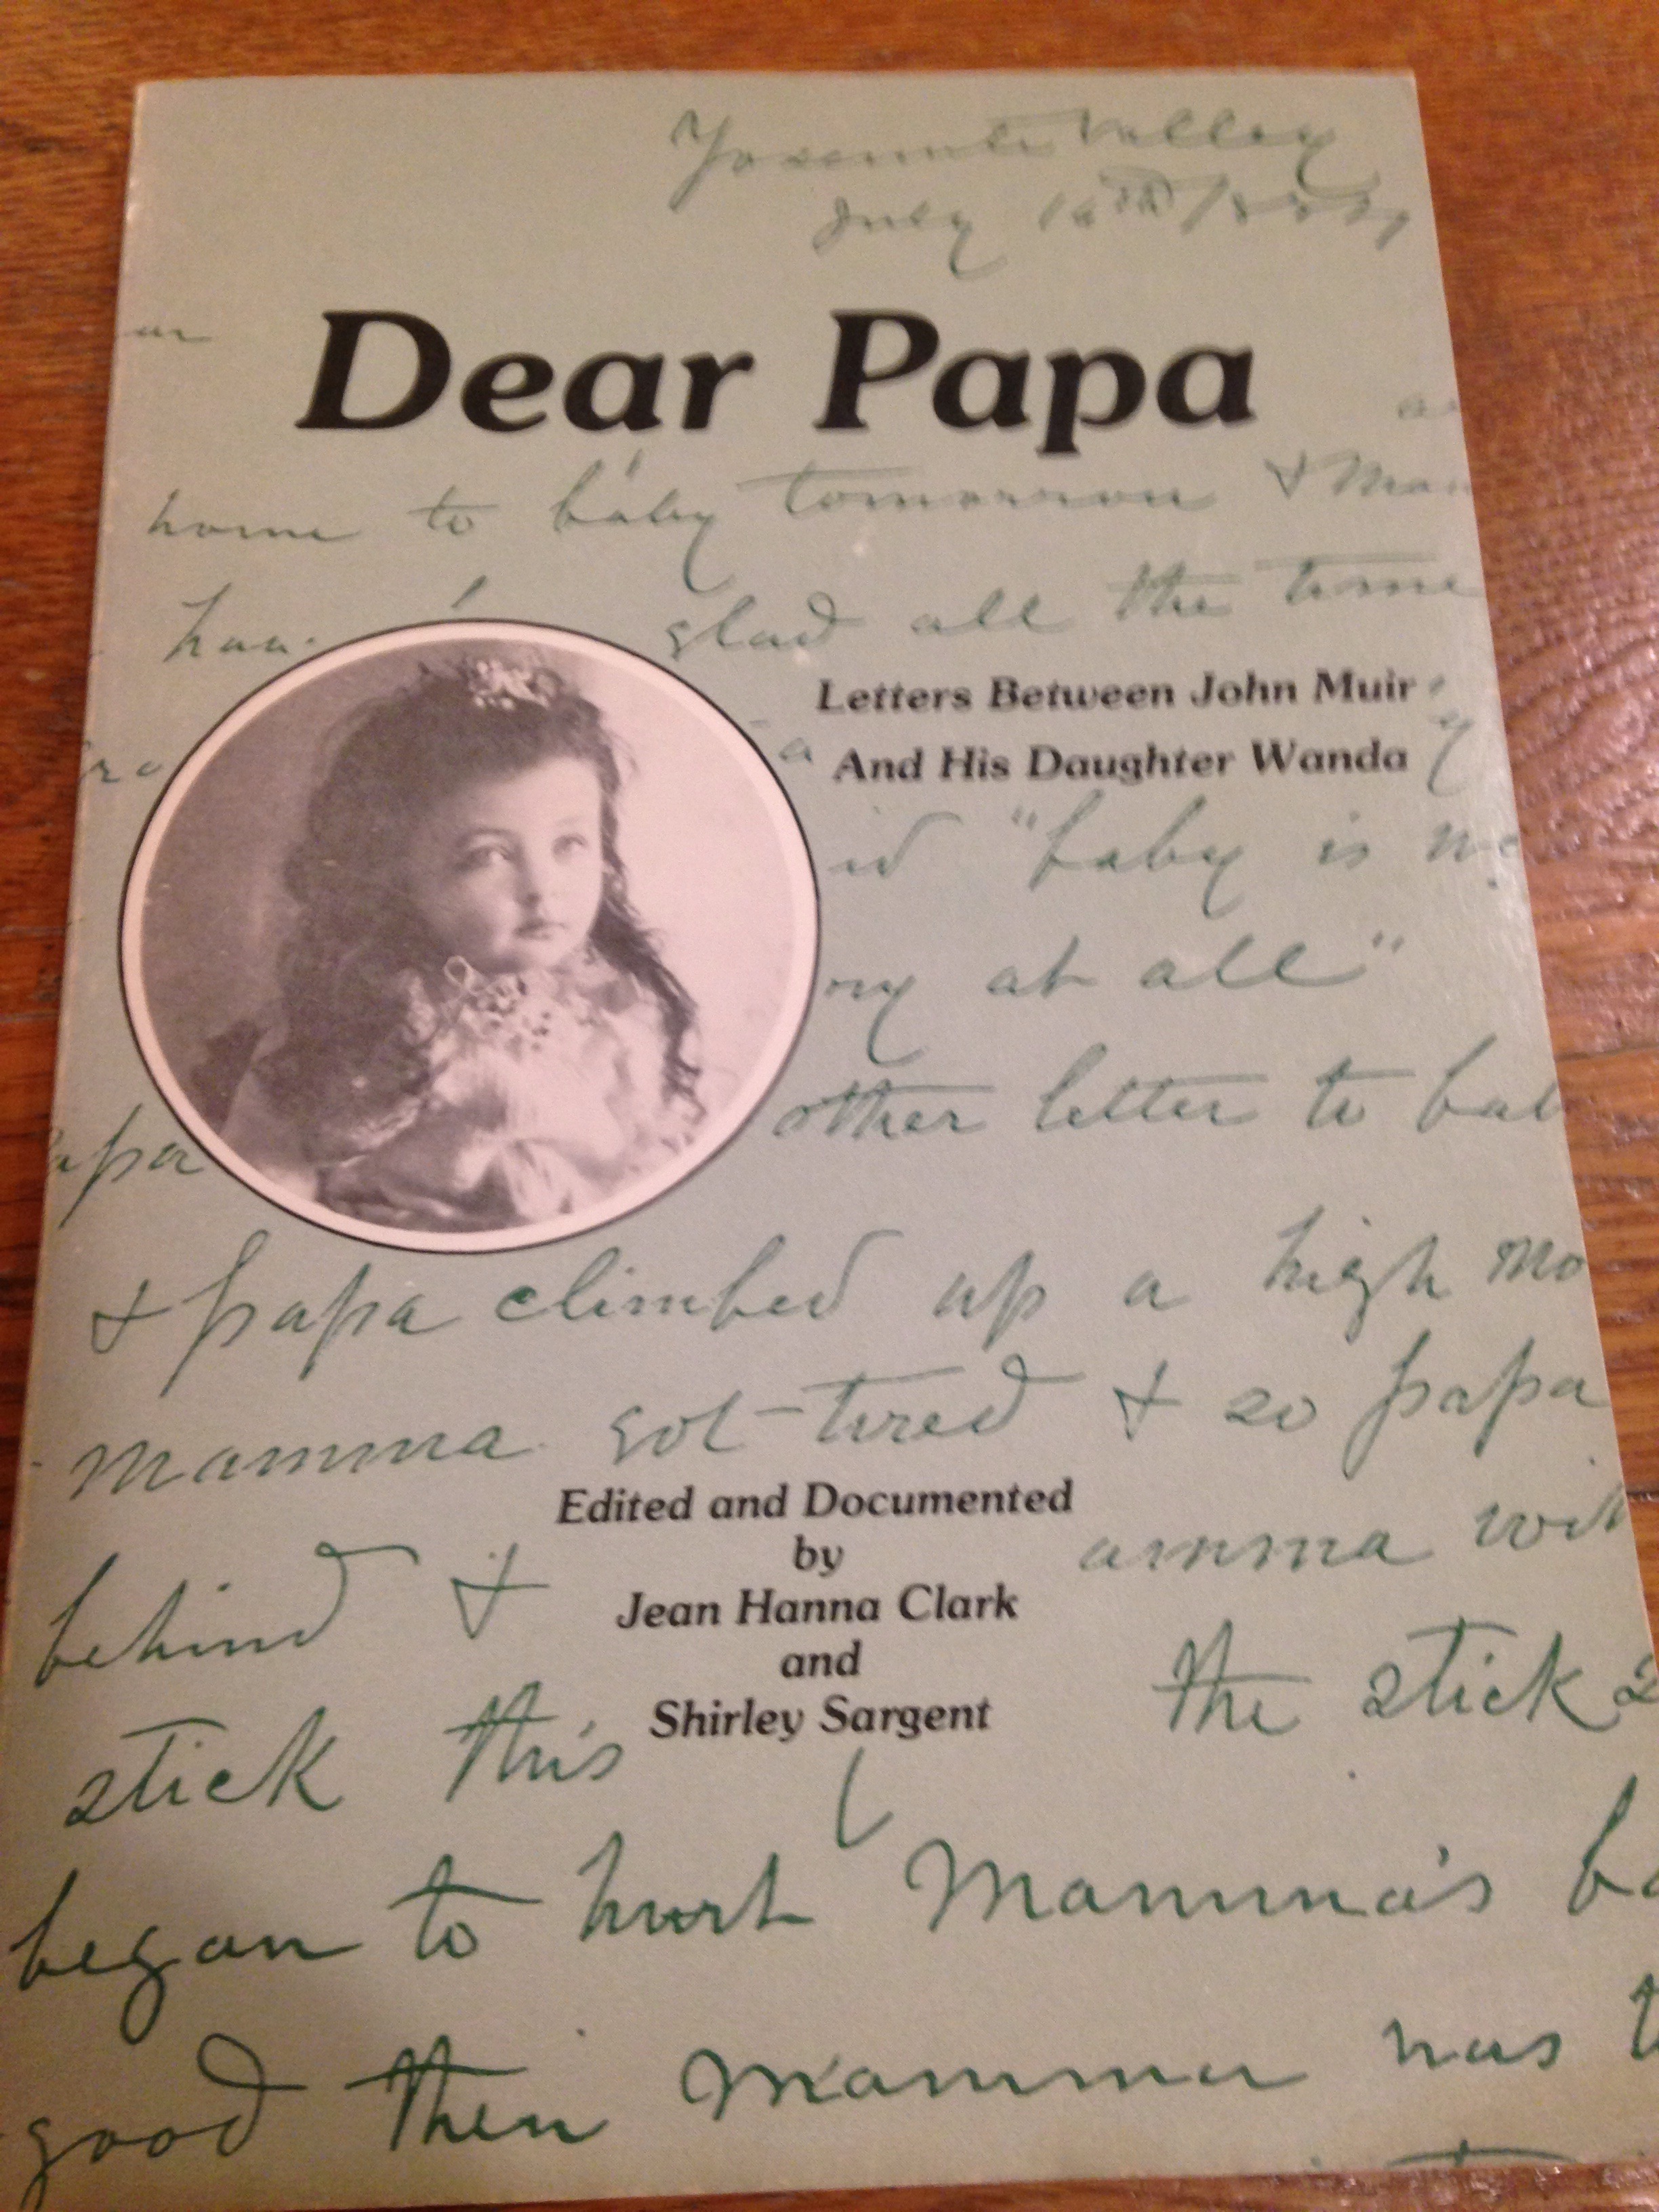 Yosemite Valley
July
Dear Papa
home to baby tomorrow &
glad all the time
Letters Between John Muir
And His Daughter Wanda
"baby is
at all"
other letter to
& papa climbed up a high
mamma got tired & so papa
Edited and Documented
by
Jean Hanna Clark
and
Shirley Sargent
behind &
stick this the stick
began to hurt Mamma's
good then Mamma was